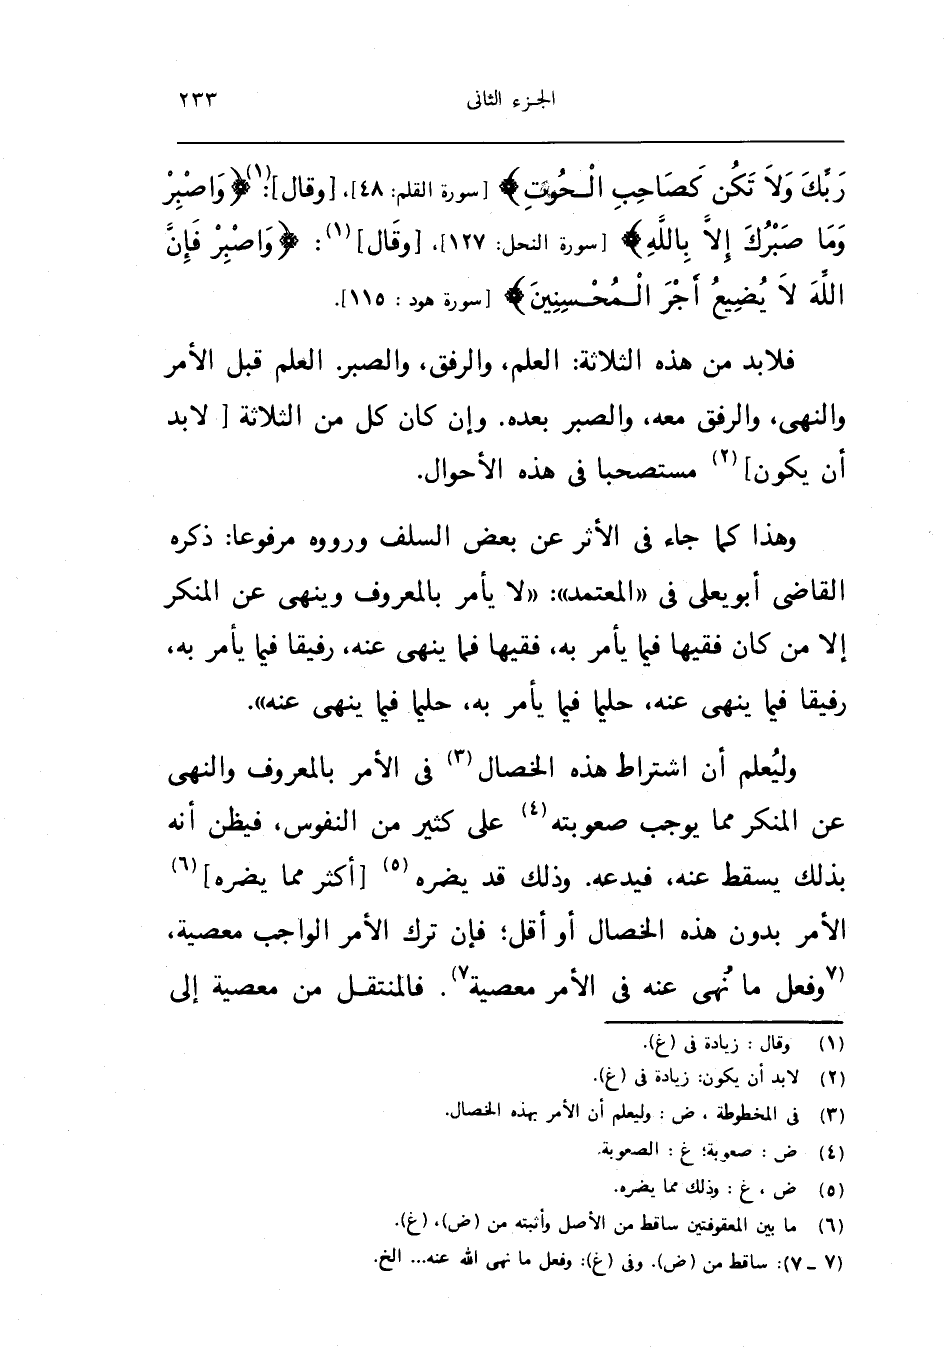 الجزء الثانى ٢٣٣
رَبِّكَ وَلاَ تَكُن كَصَاحِبِ الْحُوتِ﴾ [سورة القلم: ٤٨]، [وقال]:(١) ﴿وَاصْبِرْ
وَمَا صَبْرُكَ إِلاَّ بِاللَّهِ﴾ [سورة النحل: ١٢٧]، [وقَال](١): ﴿وَاصْبِرْ فَإِنَّ
اللَّهَ لاَ يُضِيعُ أَجْرَ الْمُحْسِنِينَ﴾ [سورة هود : ١١٥].
فلابد من هذه الثلاثة: العلم، والرفق، والصبر. العلم قبل الأمر
والنهى، والرفق معه، والصبر بعده. وإن كان كل من الثلاثة [ لابد
أن يكون](٢) مستصحبا فى هذه الأحوال.
وهذا كما جاء فى الأثر عن بعض السلف ورووه مرفوعا: ذكره
القاضى أبويعلى فى «المعتمد»: «لا يأمر بالمعروف وينهى عن المنكر
إلا من كان فقيها فيما يأمر به، فقيها فيما ينهى عنه، رفيقا فيما يأمر به،
رفيقا فيما ينهى عنه، حليما فيما يأمر به، حليما فيما ينهى عنه».
وليُعلم أن اشتراط هذه الخصال(٣) فى الأمر بالمعروف والنهى
عن المنكر مما يوجب صعوبته(٤) على كثير من النفوس، فيظن أنه
بذلك يسقط عنه، فيدعه. وذلك قد يضره(٥) [أكثر مما يضره](٦)
الأمر بدون هذه الخصال أو أقل؛ فإن ترك الأمر الواجب معصية،
(٧وفعل ما نُهى عنه فى الأمر معصية٧). فالمنتقل من معصية إلى
(١) وقال : زيادة فى (غ).
(٢) لابد أن يكون: زيادة فى (غ).
(٣) فى المخطوطة ، ض : وليعلم أن الأمر بهذه الخصال.
(٤) ض : صعوبة؛ غ : الصعوبة.
(٥) ض ، غ : وذلك مما يضره.
(٦) ما بين المعقوفتين ساقط من الأصل وأثبته من (ض)، (غ).
(٧ ـ ٧): ساقط من (ض). وفى (غ): وفعل ما نهى الله عنه... الخ.